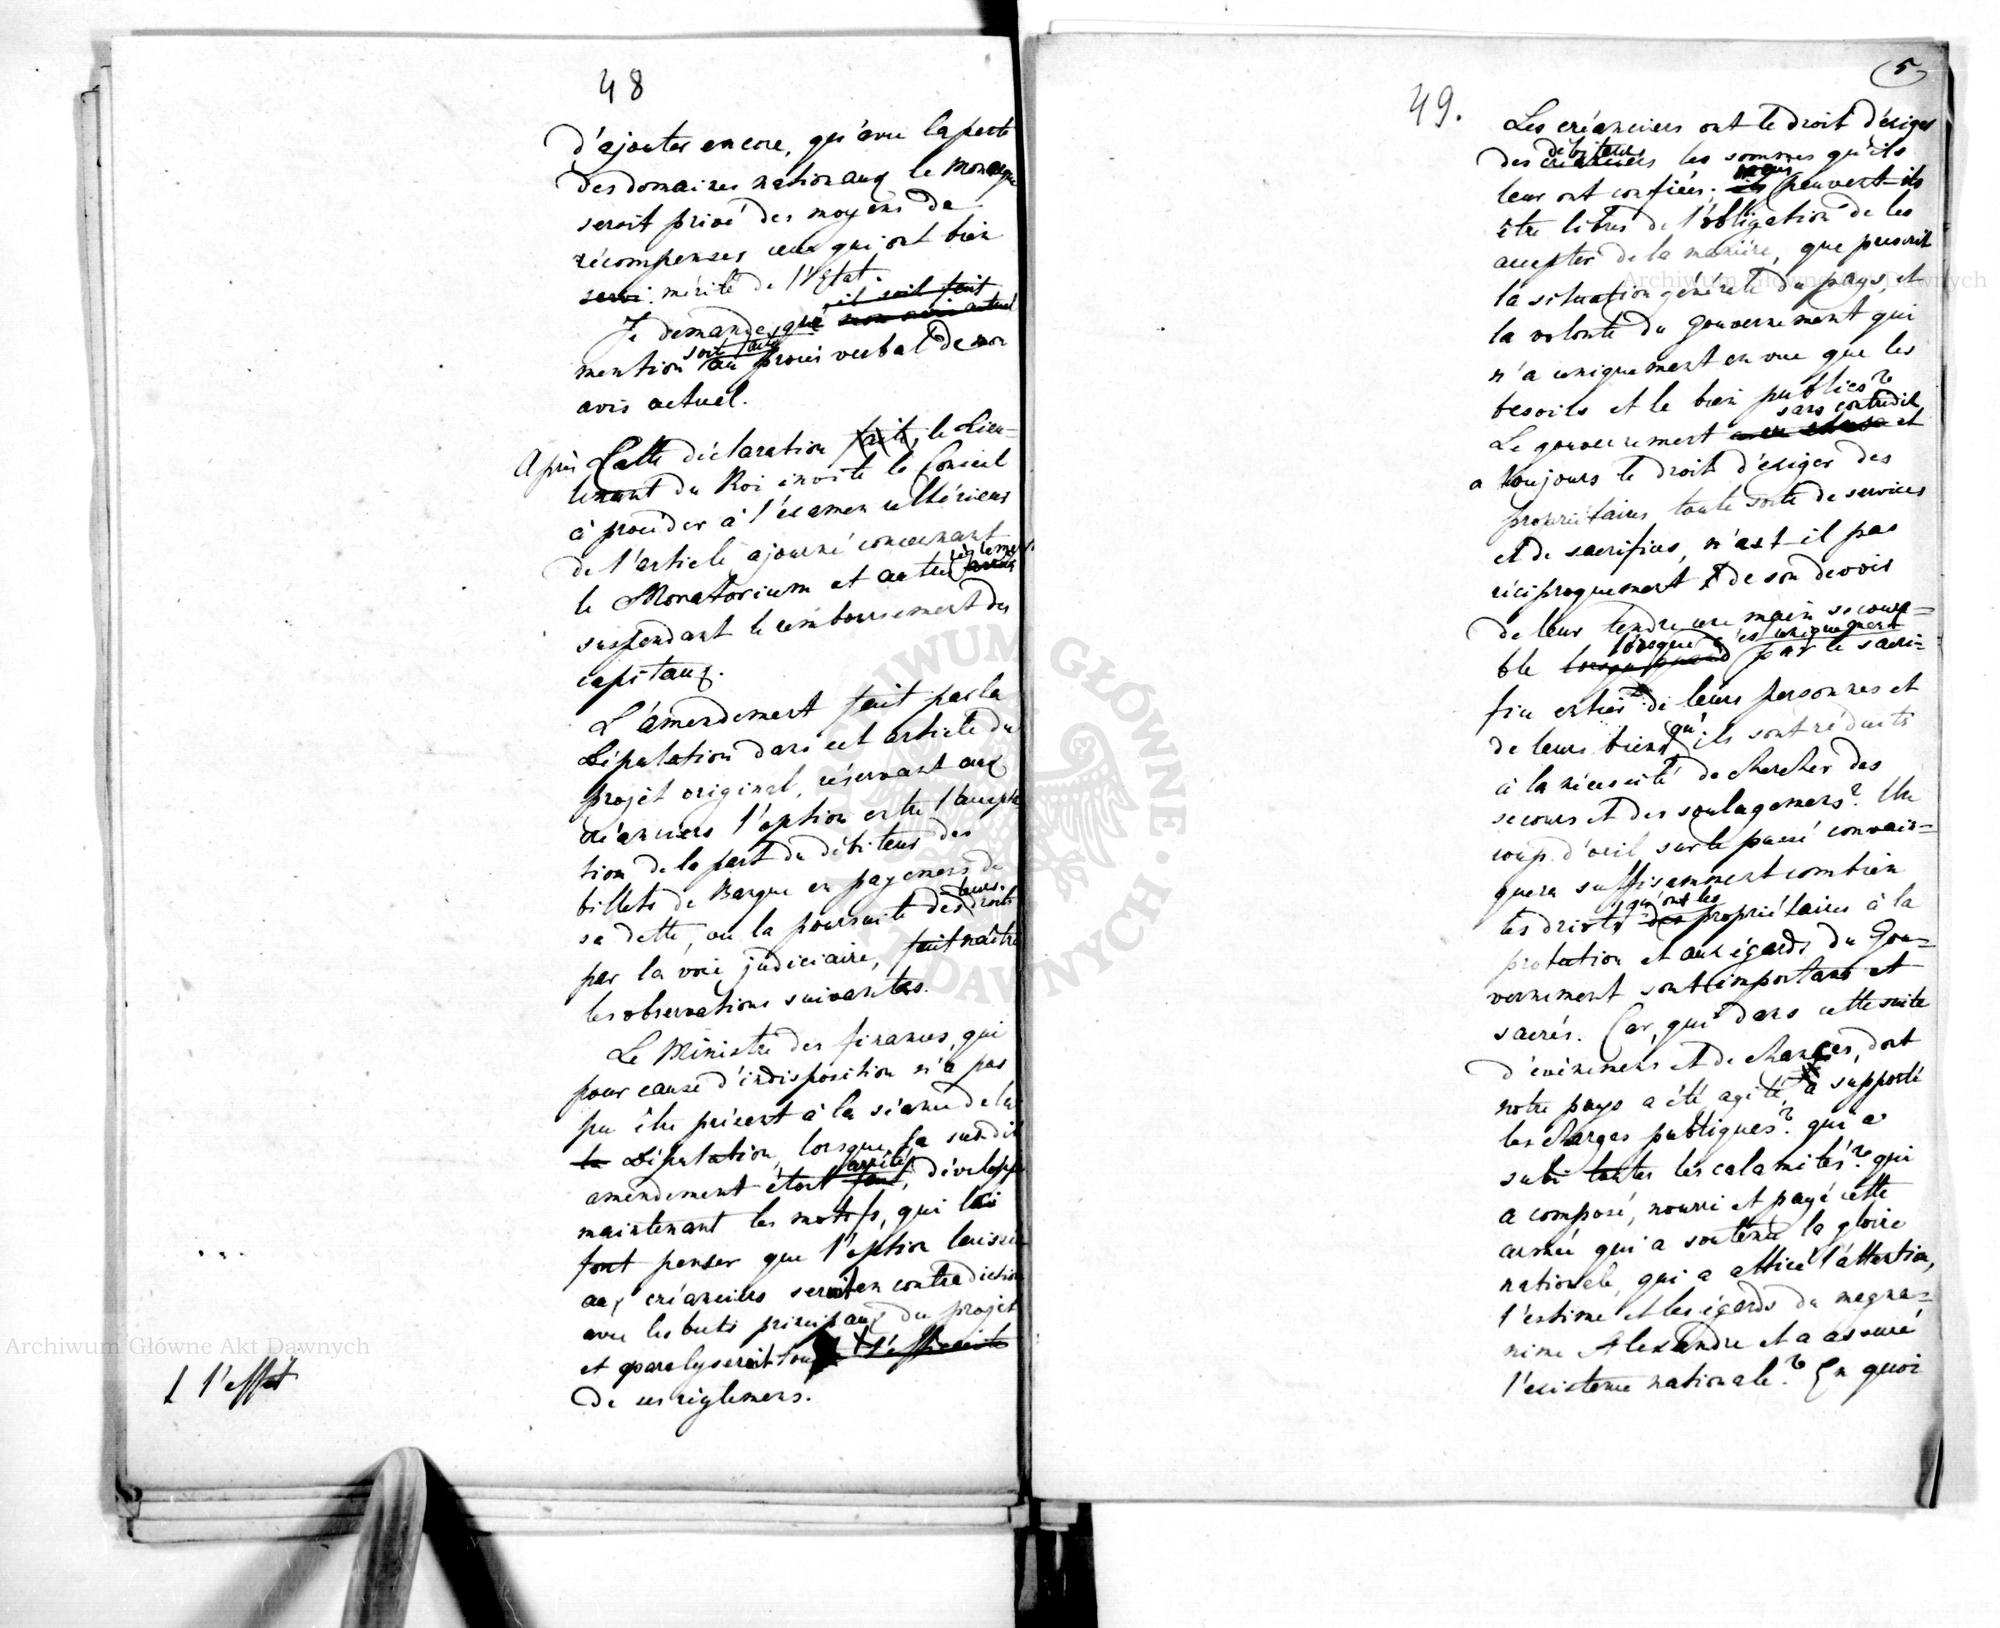 48
d'ajouter encore, qu'avec la perte
des domaines nationaux le Monarque
seroit privé des moyens de
récompenser ceux qui ont bien
servi mérité de l'Etat.
il soit fait
Je demande, que mon avis actuel
soit faite
mention au procès verbal de mon
avis actuel.
Après Cette déclaration faite, le Lieu=
tenant du Roi invite le Conseil
à procéder à l'examen ultérieur
de l'article ajourné concernant
règlemens
le Moratorium et autres
suspendant le remboursement des
capitaux.
L'amendement fait par la
Députation dans cet article du
projet original, réservant aux
créanciers l'option entre l'accepta
tion de la part du débiteur des
billets de Banque en payement de
leurs
sa dette, ou la poursuite des droits
par la voie judiciaire, fait naître
les observations suivantes.
Le Ministre des finances, qui
pour cause d'indisposition n'a pas
pu être présent à la séance de la
la Députation, lorsque la susdit
arrêté
amendement étoit fait, développe
maintenant les motifs, qui lui
font penser que l'option laissée
aux créanciers seroit en contradiction
avec les buts principaux du projet
et paralyseroit tout l'efficacité
l'effet
de ces règlemens.
5
49.
Les créanciers ont le droit d'exiger
débiteurs
des créanciers les sommes qu'ils
mais
leur ont confiées; ils peuvent-ils
être libres de l'obligation de les
accepter de la manière, que prescrit
la situation générale du pays, et
la volonté du Gouvernement qui
n'a uniquement en vue que les
besoins et le bien publics?
sans contredit
Le gouvernement et
a toujours le droit d'exiger des
propriétaires toute sorte de services
et de sacrifices, n'est-il pas
réciproquement de son devoir
de leur tendre une main secoura=
lorsque c'est uniquement
ble par le sacri=
fice entier de leurs personnes et
de leurs biens qu'ils sont réduits
à la nécessité de chercher des
secours et des soulagemens? Un
coup d'oeil sur le passé convain=
quera suffisamment combien
qu'ont les
les droits des propriétaires à la
protection et aux égards du Gou=
vernement sont importans et
sacrés. Car, qui dans cette suite
d'évènemens et de chances, dont
notre pays a été agité, a supporté
les charges publiques? qui a
subi toutes les calamités? qui
a composé, nourri et payé cette
armée qui a soutenu la gloire
nationale, qui a attiré l'attention,
l'estime et les égards du magna=
nime Alexandre et a assuré
l'existence nationale? En quoi
Archiwum Główne Akt Dawnych
Archiwum Główne Akt Dawnych
ARCHIWUM GŁÓWNE AKT DAWNYCH